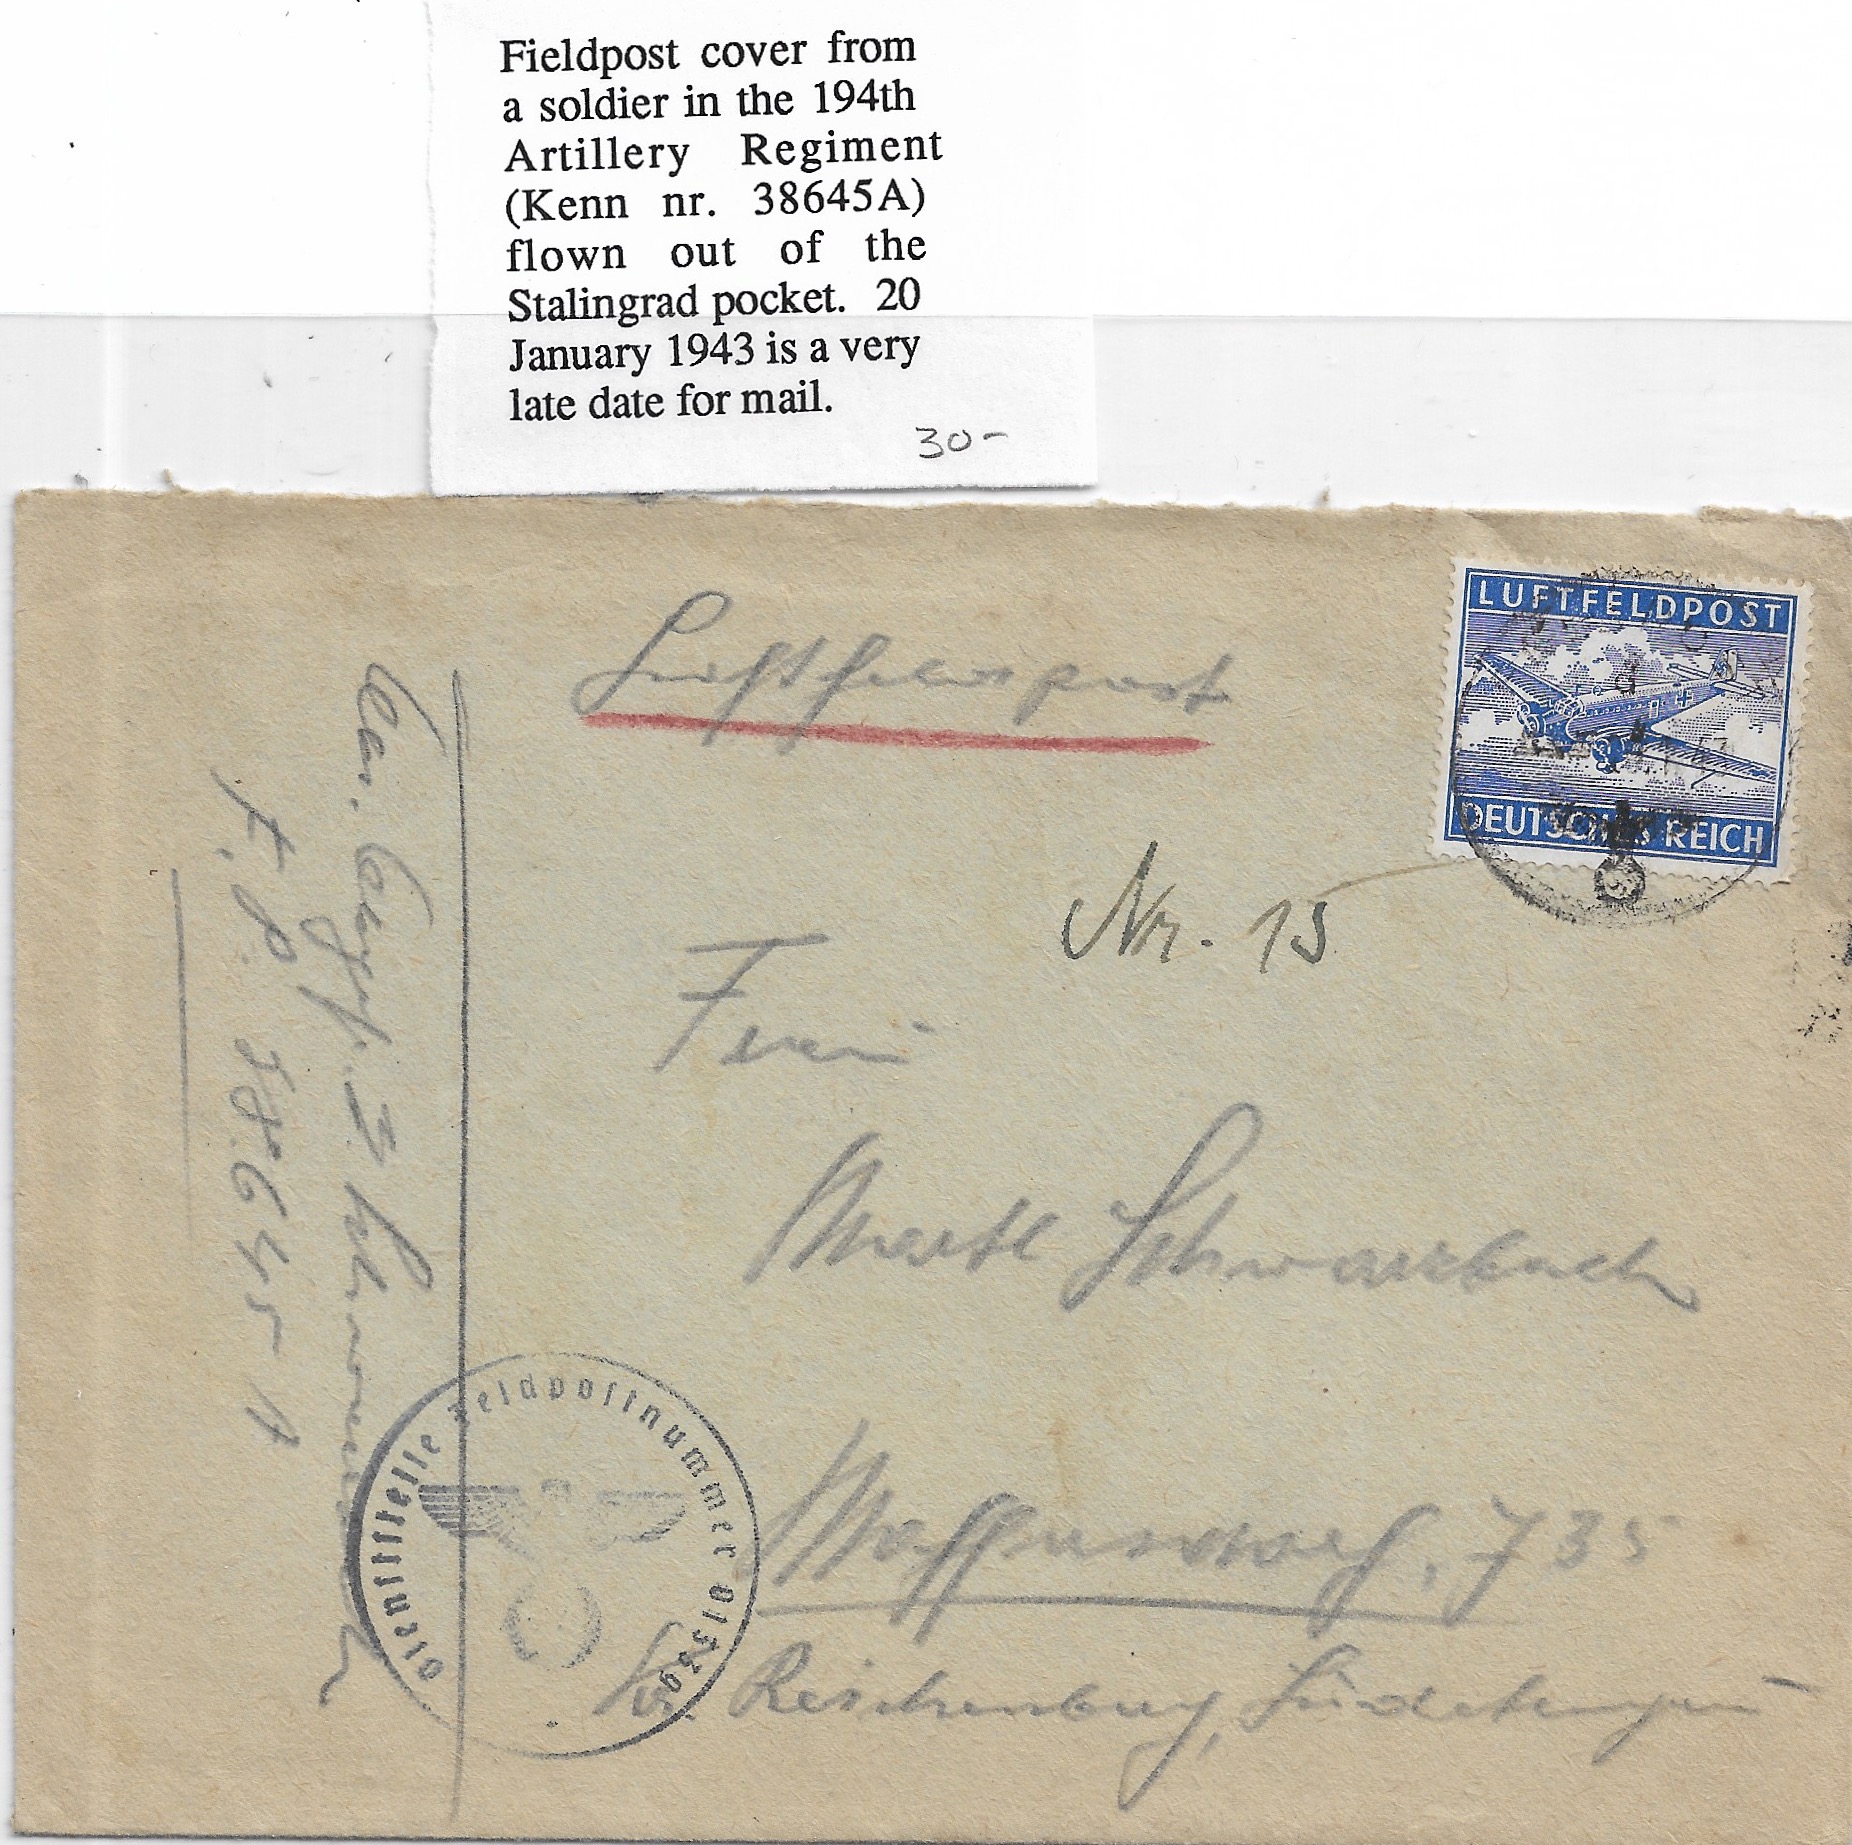 Fieldpost cover from
a soldier in the 194th
Artillery Regiment
(Kenn nr. 38645A)
flown out of the
Stalingrad pocket. 20
January 1943 is a very
late date for mail.
30-
Luftfeldpost
LUFTFELDPOST
DEUTSCHES REICH
Nr. 15
Frau
Martl Schwarzbach
Maffersdorf, 735
Reichenberg, Sudetengau
F. P. 38645 A
Dienststelle Feldpostnummer